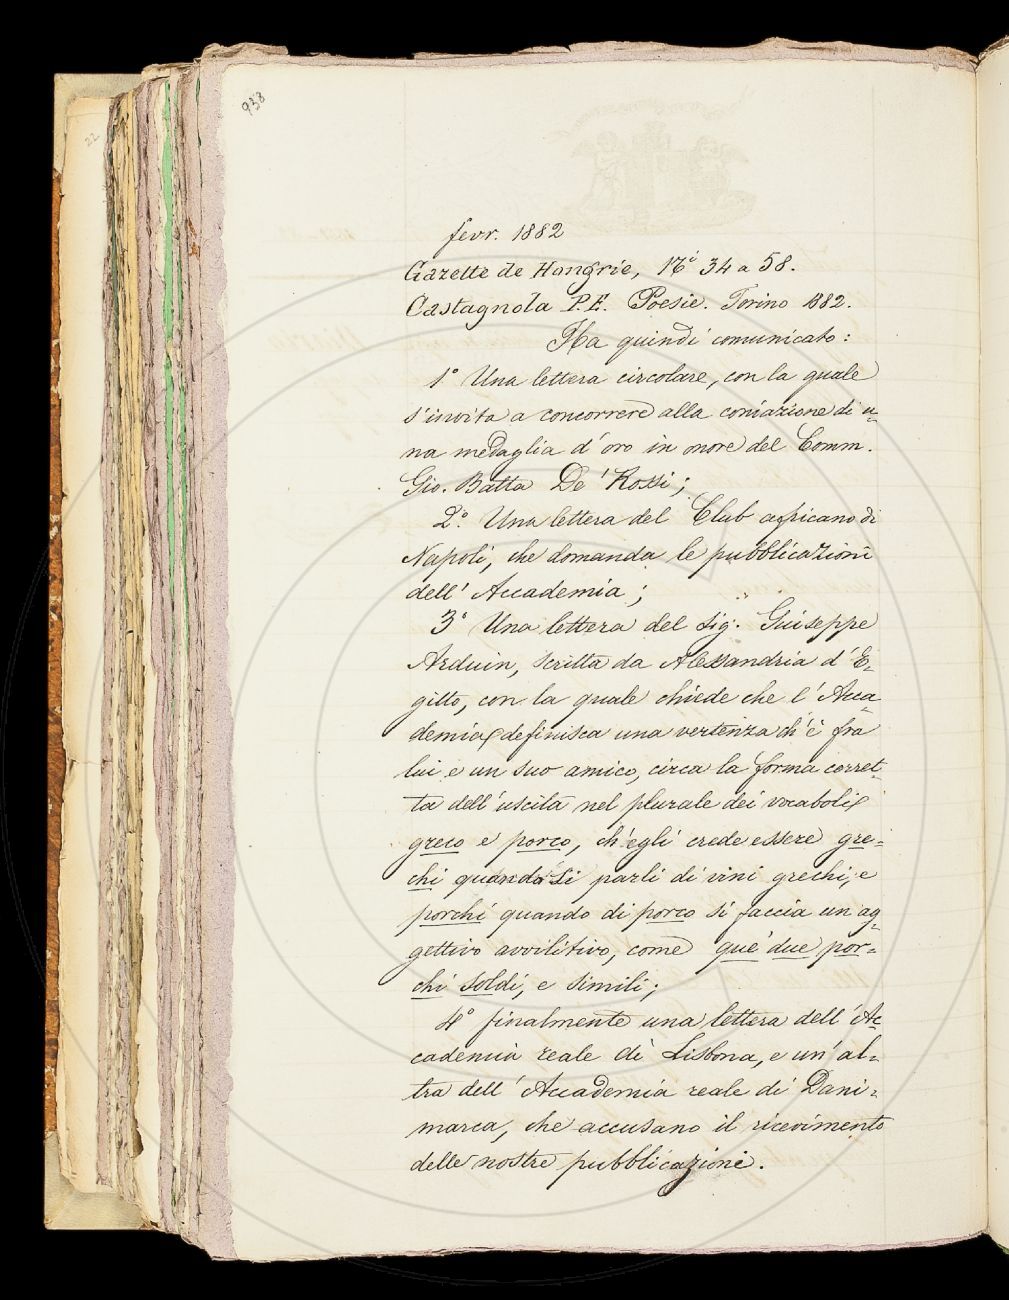 938
22
fevr. 1882
Gazette de Hongrie, Nⁱ 34 a 58.
Castagnola P. E. Poesie. Torino 1882.
Ha quindi comunicato:
1° Una lettera circolare, con la quale
s'invita a concorrere alla coniazione di u-
na medaglia d'oro in onore del Comm.
Gio. Batta De' Rossi;
2°. Una lettera del Club africano di
Napoli, che domanda le pubblicazioni
dell'Accademia;
3° Una lettera del sig. Giuseppe
Arduin, scritta da Alessandria d'E-
gitto, con la quale chiede che l'Acca-
demia definisca una vertenza ch'è fra
lui e un suo amico, circa la forma corret-
ta dell'uscita nel plurale dei vocaboli
greco e porco, ch'egli crede essere gre-
chi quando si parli di vini grechi, e
porchi quando di porco si faccia un ag-
gettivo avvilitivo, come que' due por-
chi soldi, e simili;
4° finalmente una lettera dell'Ac-
cademia reale di Lisbona, e un'al-
tra dell'Accademia reale di Dani-
marca, che accusano il ricevimento
delle nostre pubblicazioni.